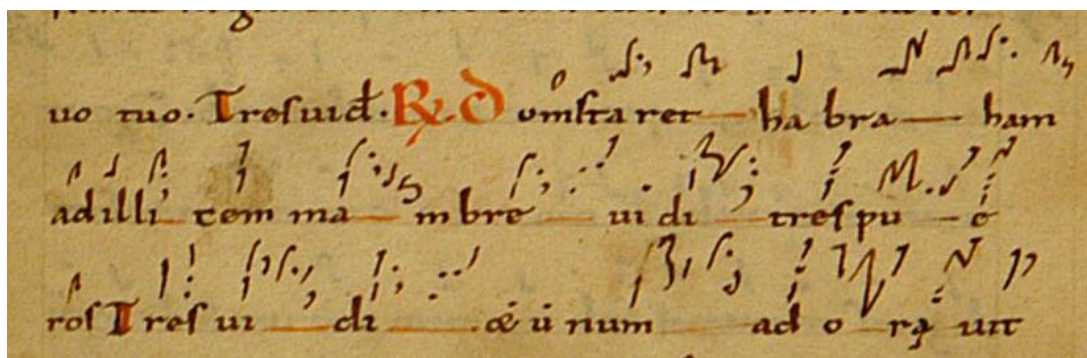 uo tuo. Tres uid̄. ℟. Dum staret ha bra ham
ad illi cem ma mbre ui di tres pu e
ros Tres ui di & unum ad o ra uit